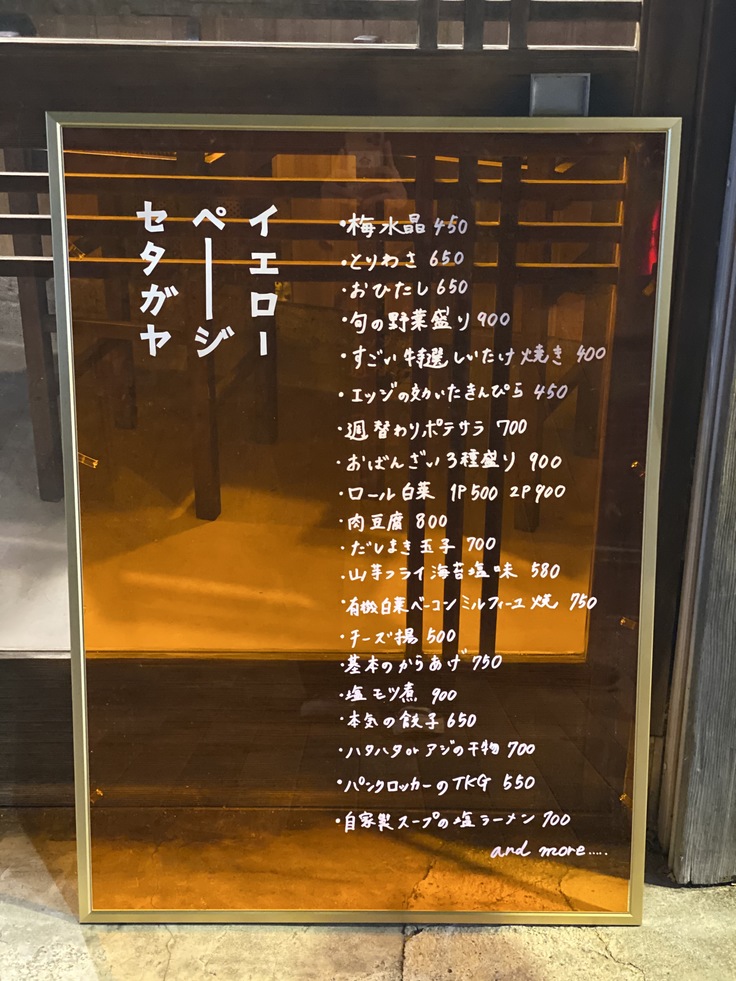 イエロー
ページ
セタガヤ
・梅水晶 450
・とりわさ 650
・おひたし 650
・旬の野菜盛り 900
・すごい特選しいたけ焼き 400
・エッジの効いたきんぴら 450
・週替わりポテサラ 700
・おばんざい3種盛り 900
・ロール白菜 1P500 2P900
・肉豆腐 800
・だしまき玉子 700
・山芋フライ海苔塩味 580
・有機白菜ベーコンミルフィーユ焼 750
・チーズ揚 500
・基本のからあげ 750
・塩モツ煮 900
・本気の餃子 650
・ハタハタorアジの干物 700
・パンクロッカーのTKG 550
・自家製スープの塩ラーメン 700
and more.....